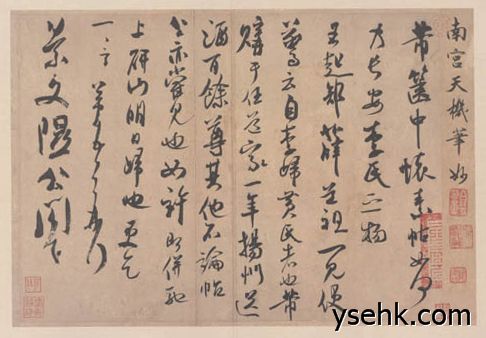 南宮天機筆妙
芾篋中懷素帖如何
乃長安李氏之物
王起部薛道祖一見便
驚云自李歸黃氏者也芾
購于任道家一年揚州送
酒百餘尊其他不論帖
公亦嘗見也如許即併馳
上研山明日歸也更乞
一言芾頓首再拜
景文隰公閤下
ysehk.com